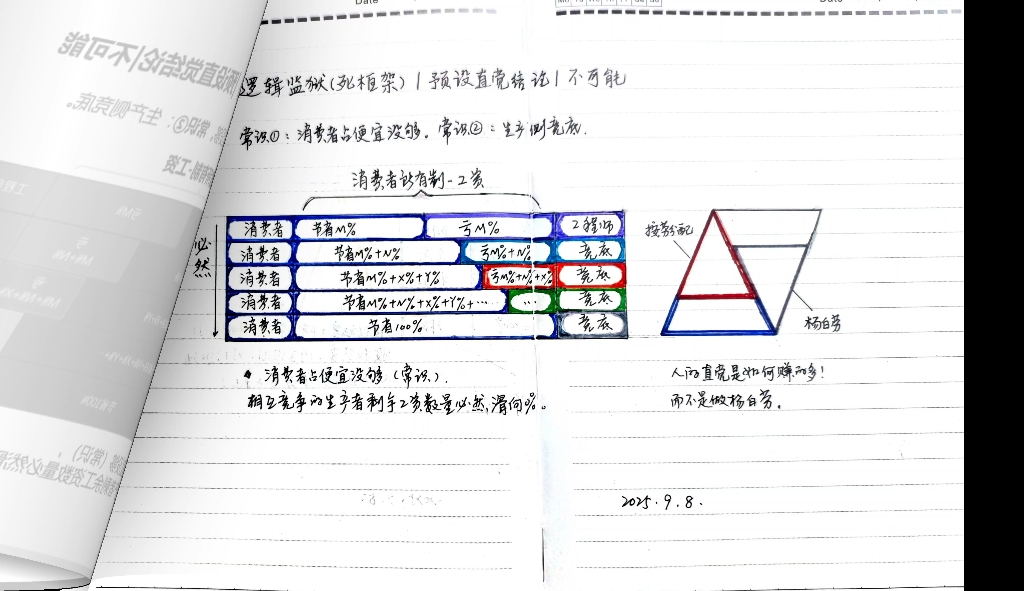 逻辑监狱(死框架) | 预设直觉结论 | 不可能
常识①：消费者占便宜没够。常识②：生产侧竞底.
消费者所有制-工资
必然
消费者 节省M% 亏M% 工程师
消费者 节省M%+N% 亏M%+N% 竞底
消费者 节省M%+X%+Y% 亏M%+N%+X% 竞底
消费者 节省M%+N%+X%+Y%+… … 竞底
消费者 节省100% 竞底
消费者占便宜没够(常识).
相互竞争的生产者剩余工资数量必然,滑向0%。
按劳分配
杨白劳
人的直觉是如何赚的多!
而不是做杨白劳。
2025.9.8.
预设直觉结论|不可能
常识②：生产侧竞底。